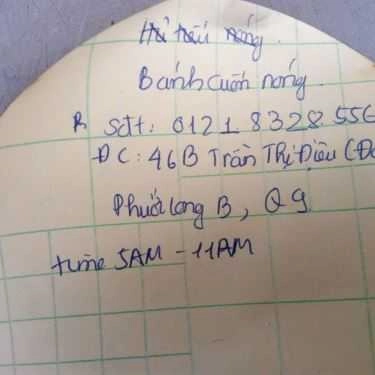 Hủ tiếu nóng.
Bánh cuốn nóng.
sđt: 0121 8328 556
ĐC: 46B Trần Thị Điệu (Đ
Phước Long B, Q9
time 5AM - 11AM